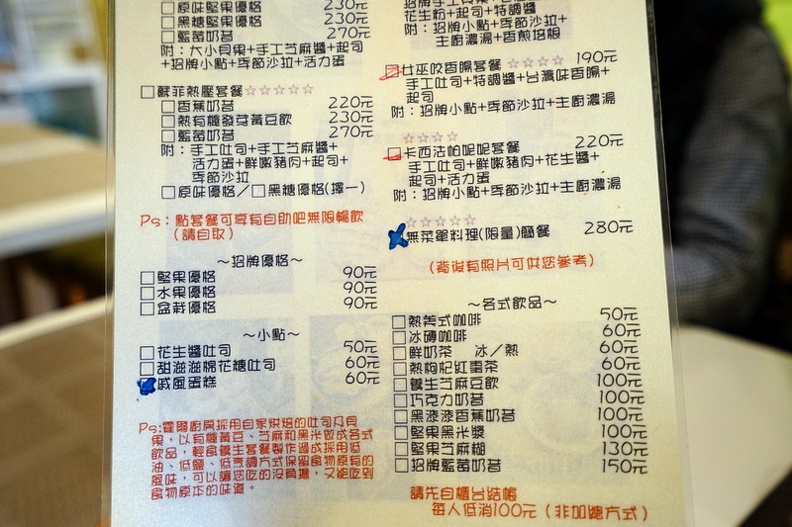 □原味堅果優格 230元
□黑糖堅果優格 230元
□藍莓奶昔 270元
附：大小貝果+手工芝麻醬+起司
+招牌小點+季節沙拉+活力蛋
□蘇菲熱壓套餐☆☆☆☆☆
□香蕉奶昔 220元
□熱有機發芽黃豆飲 230元
□藍莓奶昔 270元
附：手工吐司+手工芝麻醬+
活力蛋+鮮嫩豬肉+起司+
季節沙拉
□原味優格／□黑糖優格(擇一)
Ps：點套餐可享有自助吧無限暢飲
(請自取)
～招牌優格～
□堅果優格 90元
□水果優格 90元
□盆栽優格 90元
～小點～
□花生醬吐司 50元
□甜滋滋棉花糖吐司 60元
□戚風蛋糕 60元
Ps:霍爾廚房採用自家烘焙的吐司及貝
果，以有機黃豆、芝麻和黑米做成各式
飲品，輕食養生套餐製作過成採用低
油、低鹽、低烹調方式保留食物原有的
風味，可以讓您吃的沒負擔，又能吃到
食物原本的味道。
花生粉+起司+特調醬
附：招牌小點+季節沙拉+
主廚濃湯+香煎培根
□女巫咬香腸套餐 ☆☆☆☆ 190元
手工吐司+特調醬+台灣味香腸+
起司
附：招牌小點+季節沙拉+主廚濃湯
☆☆☆☆
□卡西法帕呢呢套餐 220元
手工吐司+鮮嫩豬肉+花生醬+
起司+活力蛋
附：招牌小點+季節沙拉+主廚濃湯
☆☆☆☆☆
□無菜單料理(限量)簡餐 280元
(背後有照片可供您參考)
～各式飲品～
□熱美式咖啡 50元
□冰磚咖啡 60元
□鮮奶茶 冰／熱 60元
□熱枸杞紅棗茶 60元
□養生芝麻豆飲 100元
□巧克力奶昔 100元
□黑漆漆香蕉奶昔 100元
□堅果黑米漿 100元
□堅果芝麻糊 130元
□招牌藍莓奶昔 150元
請先自櫃台結帳
每人低消100元（非加總方式）